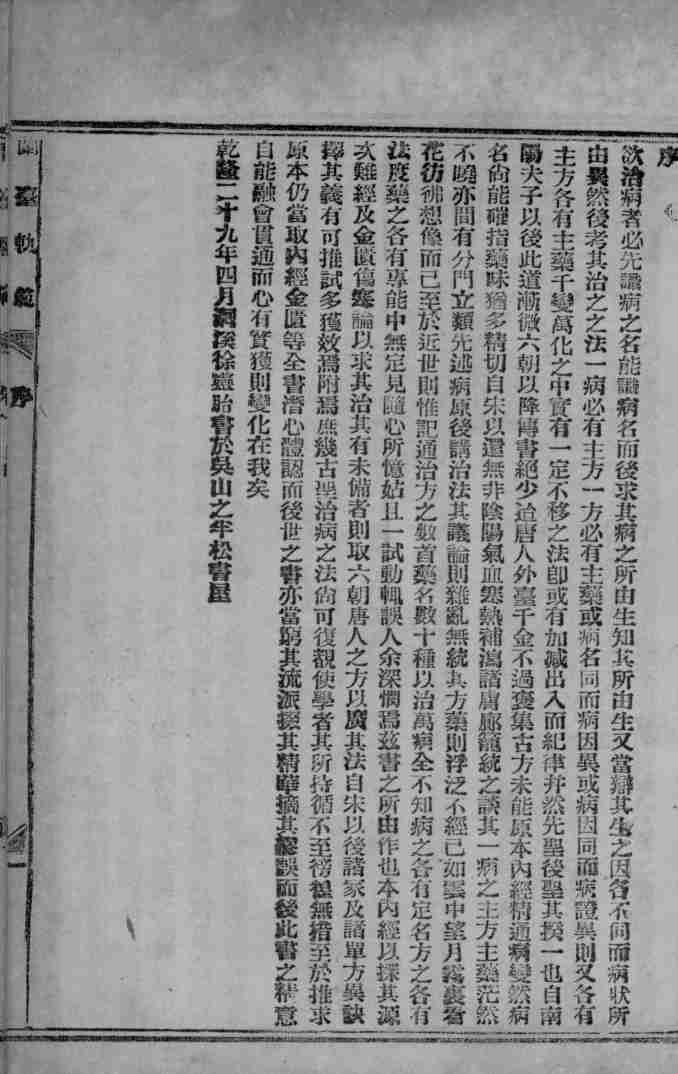 序
欲治病者必先識病之名能識病名而後求其病之所由生知其所由生又當辯其生之因各不同而病狀所
由異然後考其治之之法一病必有主方一方必有主藥或病名同而病因異或病因同而病證異則又各有
主方各有主藥千變萬化之中實有一定不移之法卽或有加减出入而紀律井然先聖後聖其揆一也自南
陽夫子以後此道漸微六朝以降傳書絕少迨唐人外臺千金不過裒集古方未能原本內經精通病變然病
名尙能確指藥味猶多精切自宋以還無非陰陽氣血寒熱補瀉諸膚廓籠統之談其一病之主方主藥茫然
不曉亦間有分門立類先述病原後講治法其議論則雜亂無統其方藥則浮泛不經已如雲中望月霧裏看
花彷彿想像而已至於近世則惟記通治方之數首藥名數十種以治萬病全不知病之各有定名方之各有
法度藥之各有專能中無定見隨心所憶姑且一試動輒誤人余深憫焉茲書之所由作也本內經以探其源
次難經及金匱傷寒論以求其治其有未備者則取六朝唐人之方以廣其法自宋以後諸家及諸單方異訣
擇其義有可推試多獲效焉附焉庶幾古聖治病之法尙可復覩使學者其所持循不至徬徨無措至於推求
原本仍當取內經金匱等全書潛心體認而後世之書亦當窮其流派掇其精華摘其謬誤而後此書之精意
自能融會貫通而心有實獲則變化在我矣
乾隆二十九年四月洄溪徐靈胎書於吳山之半松書屋
蘭臺軌範 序